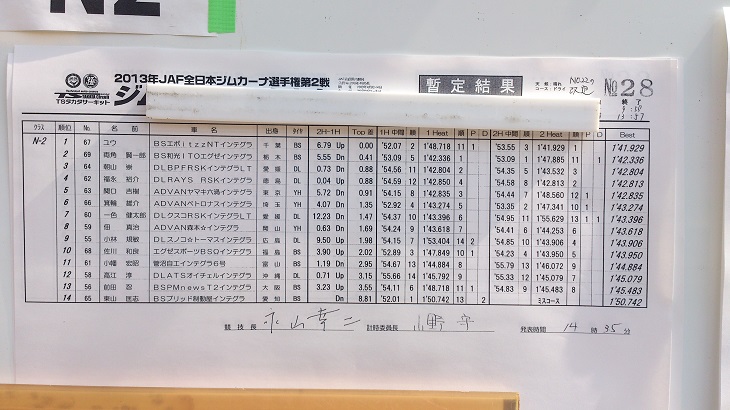 N-2
2013年JAF全日本ジムカーナ選手権第2戦
TSタカタサーキット
ジム
暫定結果
天候:晴れ
コース:ドライ
No.22の
改定
No 28
終了
13:57
クラス 順位 No. 名前 車名 出巻 タイヤ 2H-1H Top差 1H中間 順 1 Heat 順 P D 2H中間 順 2 Heat 順 P D Best
N-2 1 67 ユウ BSエボitzzNTインテグラ 千葉 BS 6.79 Up 0.00 '52.07 2 1'48.718 11 1 '53.55 3 1'41.929 1 1'41.929
2 69 両角 賢一郎 BS和光ITOエグゼインテグラ 栃木 BS 5.55 Dn 0.41 '53.09 5 1'42.336 1 '53.09 1 1'47.885 11 1 1'42.336
3 64 朝山 崇 DLBPFRSKインテグラLT 愛媛 DL 0.73 Dn 0.88 '54.56 11 1'42.804 2 '54.35 5 1'43.532 4 1'42.804
4 62 福永 裕介 DLRAYS RSKインテグラ 徳島 DL 0.04 Up 0.88 '54.59 12 1'42.850 4 '54.58 8 1'42.813 2 1'42.813
5 63 関口 吉樹 ADVANヤマキ六渦インテグラ 東京 YH 5.72 Dn 0.91 '54.15 8 1'42.835 3 '54.44 7 1'48.560 12 1 1'42.835
6 66 箕輪 雄介 ADVANベトロナスインテグラ 埼玉 YH 4.07 Dn 1.35 '52.92 4 1'43.274 5 '53.35 2 1'47.341 10 1 1'43.274
7 60 一色 健太郎 DLクスコRSKインテグラLT 愛媛 DL 12.23 Dn 1.47 '54.37 10 1'43.396 6 '54.95 11 1'55.629 13 1 1 1'43.396
8 59 佃 真治 ADVAN森本☆インテグラ 岡山 YH 0.63 Dn 1.69 '54.24 9 1'43.618 7 '54.41 6 1'44.253 6 1'43.618
9 55 小林 規敏 DLスノコ☆トーマスインテグラ 広島 DL 9.50 Up 1.98 '54.15 7 1'53.404 14 2 '54.85 10 1'43.906 4 1'43.906
10 68 佐川 和良 エグゼスポーツBSQ☆インテグラ 福島 BS 3.90 Up 2.02 '52.89 3 1'47.849 10 1 '54.23 4 1'43.950 5 1'43.950
11 61 小幡 宏昭 菅沼自工インテグラ6号 富山 BS 1.19 Dn 2.95 '54.67 13 1'44.884 8 '55.79 13 1'46.072 9 1'44.884
12 58 高江 淳 DLATSオイチェルインテグラ 沖縄 DL 0.71 Up 3.15 '55.66 14 1'45.792 9 '55.33 12 1'45.079 7 1'45.079
13 56 前田 忍 BSPMnewsT2インテグラ 大阪 BS 3.23 Up 3.55 '54.11 6 1'48.718 11 1 '54.83 9 1'45.483 8 1'45.483
14 65 東山 匡志 BSブリッド制動屋インテグラ 愛知 BS Dn 8.81 '52.01 1 1'50.742 13 2 ミスコース 1'50.742
競技長 永山幸二 計時委員長 小野 守 発表時間 14 時 35 分